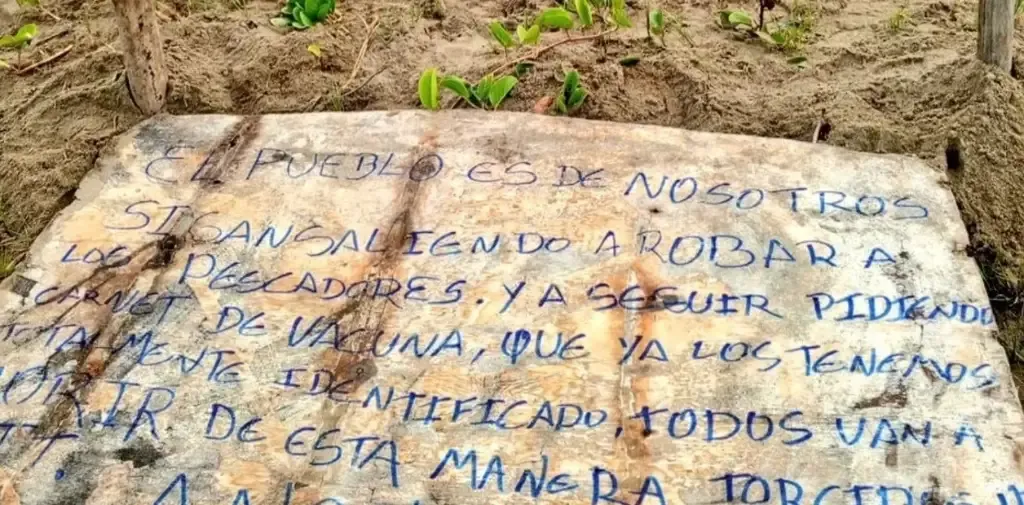 EL PUEBLO ES DE NOSOTROS
SIGAN SALIENDO A ROBAR A
LOS PESCADORES. Y A SEGUIR PIDIENDO
CARNET DE VACUNA, QUE YA LOS TENEMOS
TOTALMENTE IDENTIFICADO, TODOS VAN A
MORIR DE ESTA MANERA TORCIDOS